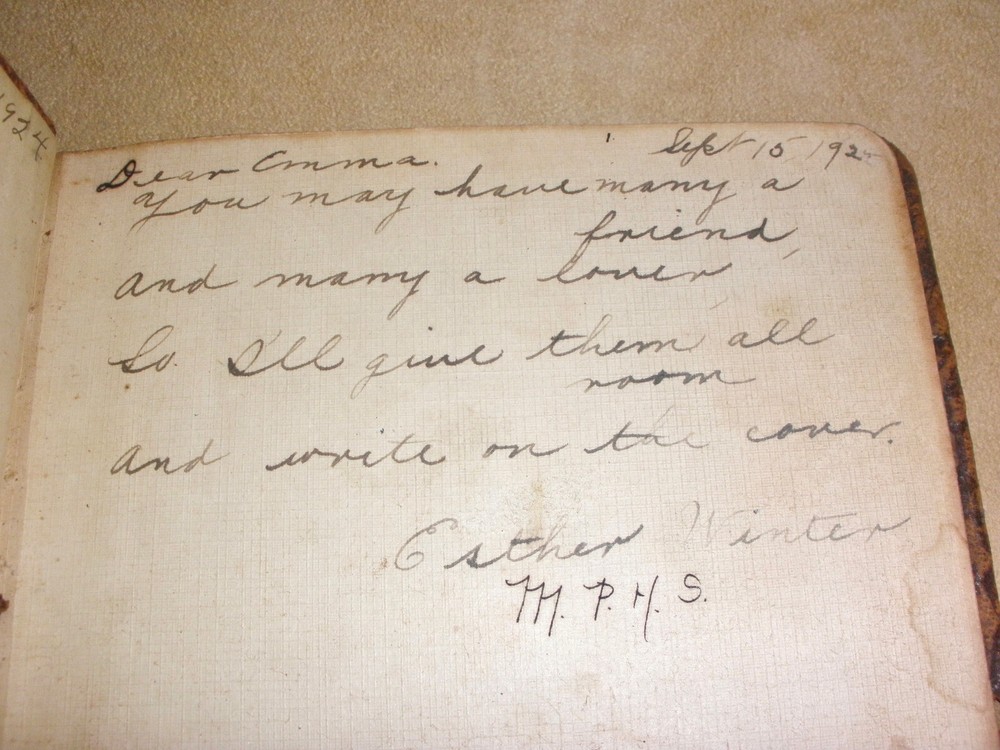 1924
Sept 15, 1924
Dear Emma.
You may have many a
friend,
and many a lover,
So. I'll give them all
room
and write on the cover.
Esther Winter
M. P. H. S.